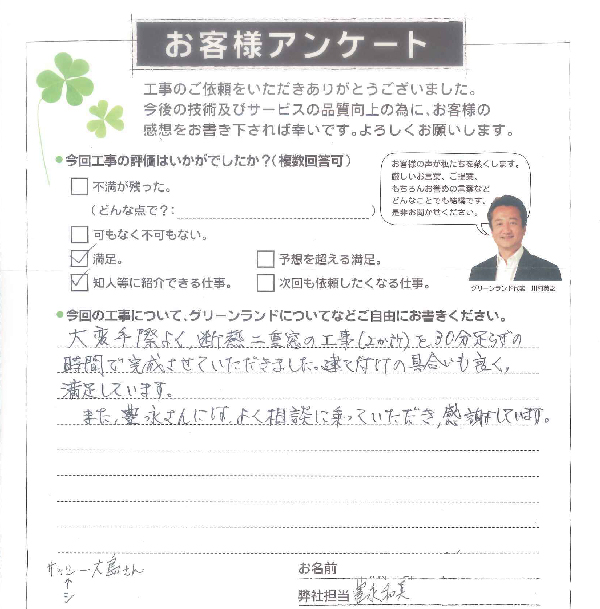 お客様アンケート
工事のご依頼をいただきありがとうございました。
今後の技術及びサービスの品質向上の為に、お客様の
感想をお書き下されば幸いです。よろしくお願いします。
●今回工事の評価はいかがでしたか？(複数回答可)
不満が残った。
(どんな点で？: )
可もなく不可もない。
満足。
予想を超える満足。
知人等に紹介できる仕事。
次回も依頼したくなる仕事。
お客様の声が私たちを熱くします。
厳しいお言葉、ご提案、
もちろんお褒めの言葉など
どんなことでも結構です。
是非お聞かせください。
グリーンランド代表
●今回の工事について、グリーンランドについてなどご自由にお書きください。
大変手際よく、断熱二重窓の工事(2か所)を30分足らずの
時間で完成させていただきました。建て付けの具合いも良く、
満足しています。
また、豊永さんには、よく相談に乗っていただき、感謝しています。
サッシー大島さん
↑
シ
お名前
弊社担当 豊永和美